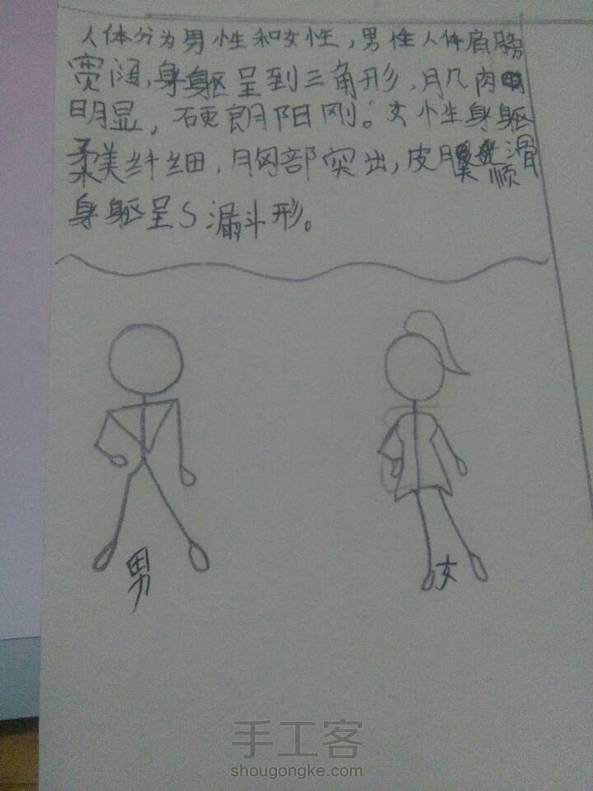 人体分为男性和女性，男性人体肩膀
宽阔，身躯呈到三角形，肌肉
明显，硬朗阳刚。女性身躯
柔美纤细，胸部突出，皮肤滑
顺
身躯呈S漏斗形。
男
女
手工客
shougongke.com